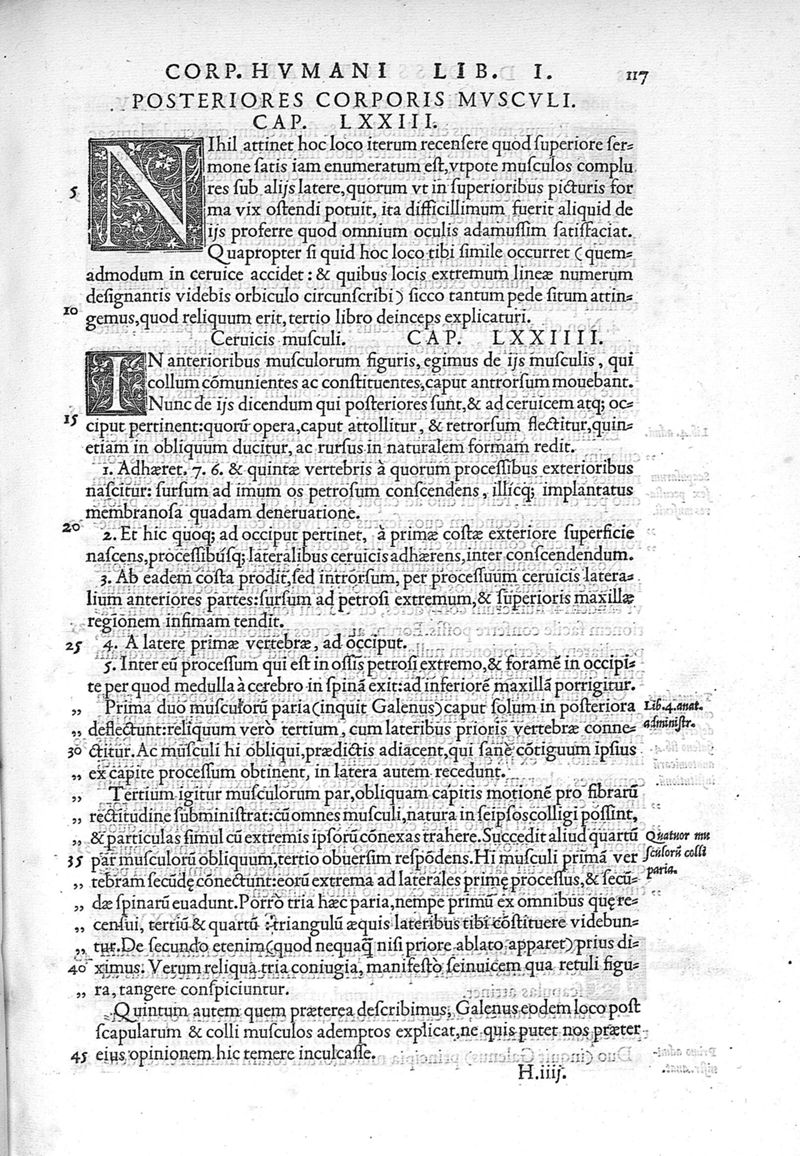 CORP. HVMANI LIB. I. 117
POSTERIORES CORPORIS MVSCVLI.
CAP. LXXIII.
NIhil attinet hoc loco iterum recensere quod superiore ser=
mone satis iam enumeratum est, vtpote musculos complu
5 res sub alijs latere, quorum vt in superioribus picturis for
ma vix ostendi potuit, ita difficillimum fuerit aliquid de
ijs proferre quod omnium oculis adamussim satisfaciat.
Quapropter si quid hoc loco tibi simile occurret (quem=
admodum in ceruice accidet: & quibus locis extremum lineæ numerum
designantis videbis orbiculo circunscribi) sicco tantum pede situm attin=
10 gemus, quod reliquum erit, tertio libro deinceps explicaturi.
Ceruicis musculi. CAP. LXXIIII.
IN anterioribus musculorum figuris, egimus de ijs musculis, qui
collum cōmunientes ac constituentes, caput antrorsum mouebant.
Nunc de ijs dicendum qui posteriores sunt, & ad ceruicem atq; oc=
15 ciput pertinent: quorū opera, caput attollitur, & retrorsum flectitur, quin=
etiam in obliquum ducitur, ac rursus in naturalem formam redit.
1. Adhæret, 7. 6. & quintæ vertebris à quorum processibus exterioribus
nascitur: sursum ad imum os petrosum conscendens, illicq; implantatus
membranosa quadam deneruatione.
20 2. Et hic quoq; ad occiput pertinet, à primæ costæ exteriore superficie
nascens, processibusq; lateralibus ceruicis adhærens, inter conscendendum.
3. Ab eadem costa prodit, sed introrsum, per processuum ceruicis latera=
lium anteriores partes: sursum ad petrosi extremum, & superioris maxillæ
regionem infimam tendit.
25 4. A latere primæ vertebræ, ad occiput.
5. Inter eū processum qui est in ossis petrosi extremo, & foramē in occipi=
te per quod medulla à cerebro in spinā exit: ad inferiorē maxillā porrigitur.
„ Prima duo musculorū paria (inquit Galenus) caput solum in posteriora Lib. 4. anat.
„ deflectunt: reliquum verò tertium, cum lateribus prioris vertebræ conne= administr.
30 ctitur. Ac musculi hi obliqui, prædictis adiacent, qui sanè cōtiguum ipsius
„ ex capite processum obtinent, in latera autem recedunt.
„ Tertium igitur musculorum par, obliquam capitis motionē pro fibrarū
„ rectitudine subministrat: cū omnes musculi, natura in seipsos colligi possint,
„ & particulas simul cū extremis ipsorū cōnexas trahere. Succedit aliud quartū Quatuor mu
35 par musculorū obliquum, tertio obuersim respōdens. Hi musculi primā ver sculorū colli
„ tebram secūdę conectunt: eorū extrema ad laterales primę processus, & secū= paria.
„ dæ spinarū euadunt. Porrò tria hæc paria, nempe primū ex omnibus quę re=
„ censui, tertiū & quartū : triangulū æquis lateribus tibi cōstituere videbun=
„ tur. De secundo etenim (quod nequaq̄ nisi priore ablato apparet) prius di=
40 ximus: Verum reliqua tria coniugia, manifestò seinuicem qua retuli figu=
„ ra, tangere conspiciuntur.
Quintum autem quem præterea describimus, Galenus eodem loco post
scapularum & colli musculos ademptos explicat, ne quis putet nos præter
45 eius opinionem hic temere inculcasse.
H.iiij.